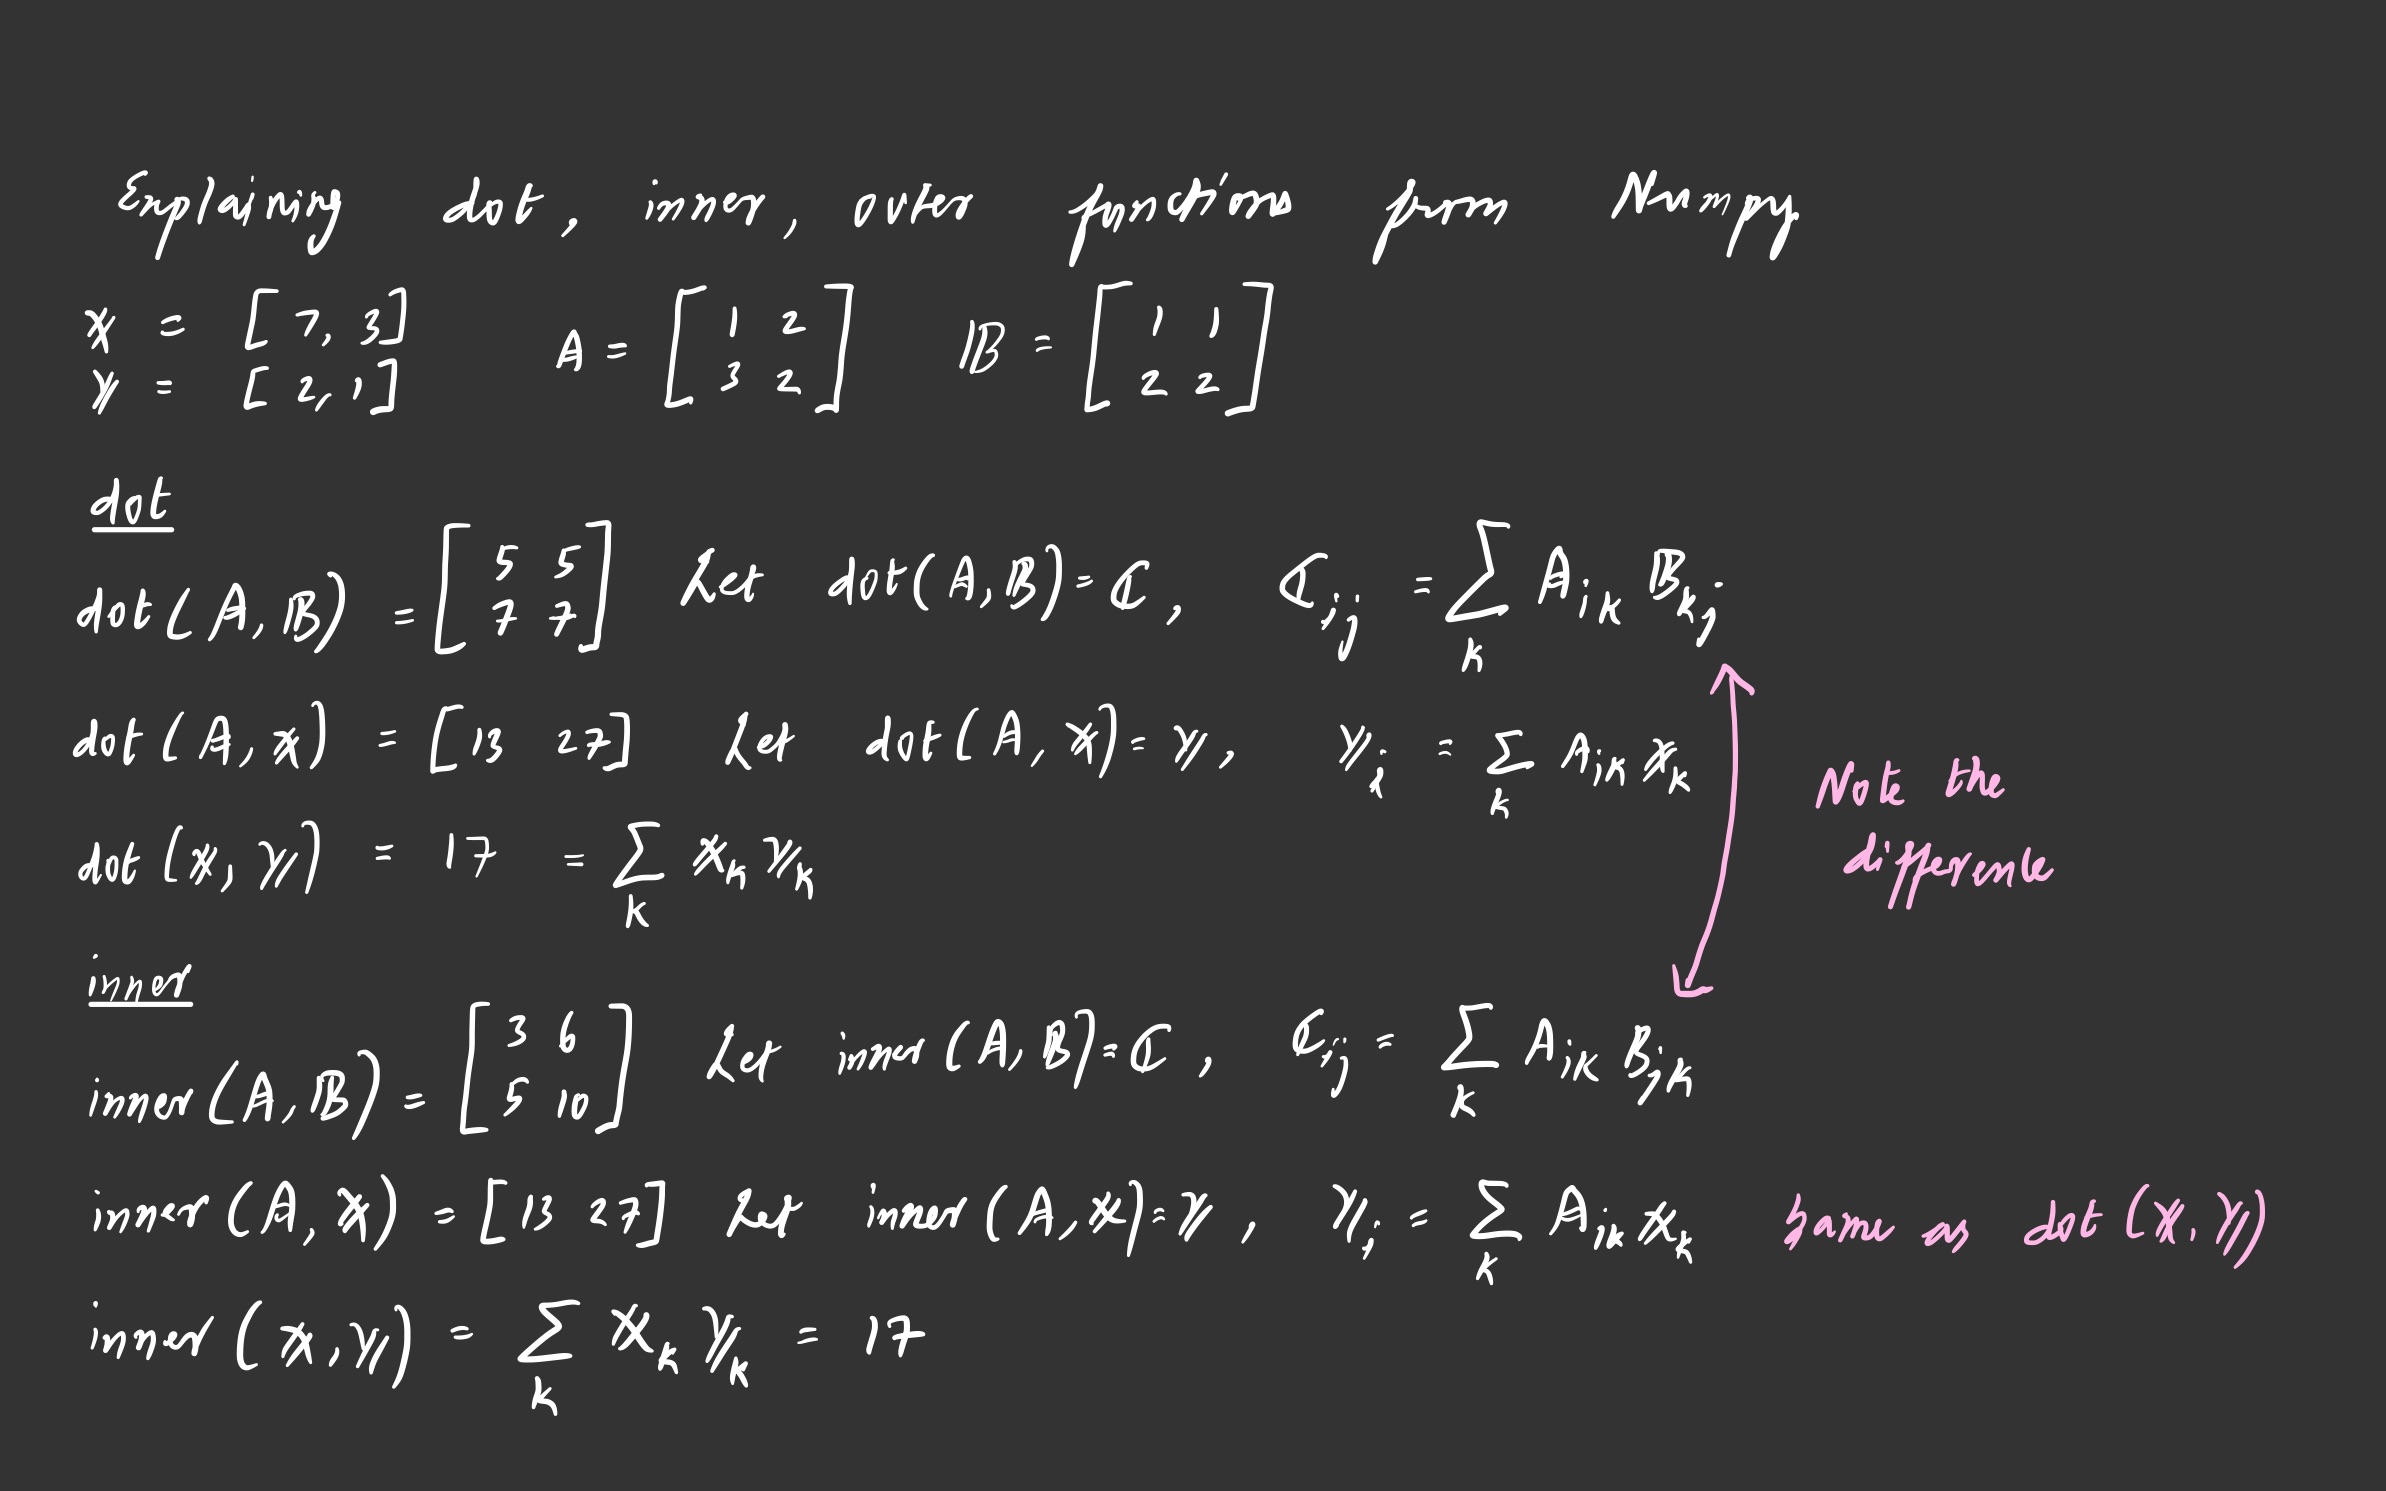 Explaining dot, inner, outer functions from Numpy
X = [7, 3]
Y = [2, 1]
A = [1 2
3 2]
B = [1 1
2 2]
dot
dot(A, B) = [5 5
7 7] Let dot(A, B) = C, C_ij = Σ_k A_ik B_kj
dot(A, X) = [13 27] Let dot(A, X) = Y, Y_i = Σ_k A_ik X_k
Note the
difference
dot(X, Y) = 17 = Σ_k X_k Y_k
inner
inner(A, B) = [3 6
5 10] Let inner(A, B) = C, C_ij = Σ_k A_ik B_jk
inner(A, X) = [13 27] Let inner(A, X) = Y, Y_i = Σ_k A_ik X_k same as dot(X, Y)
inner(X, Y) = Σ_k X_k Y_k = 17